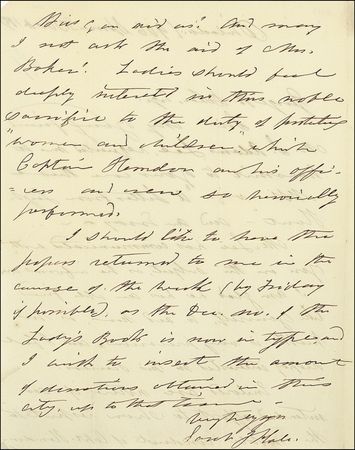 aid us? And may
I not ask the aid of Mrs.
Baker? Ladies should feel
deeply interested in this noble
sacrifice to the duty of protecting
"women and children", which
Captain Herndon and his offi-
=cers and crew so heroically
performed.
I should like to have the
papers returned to me in the
course of the week (by Friday
if possible), as the Dec. no. of the
Lady's Book is now in types and
I wish to insert the amount
of donations obtained in this
city, up to that time.
Sarah J Hale.